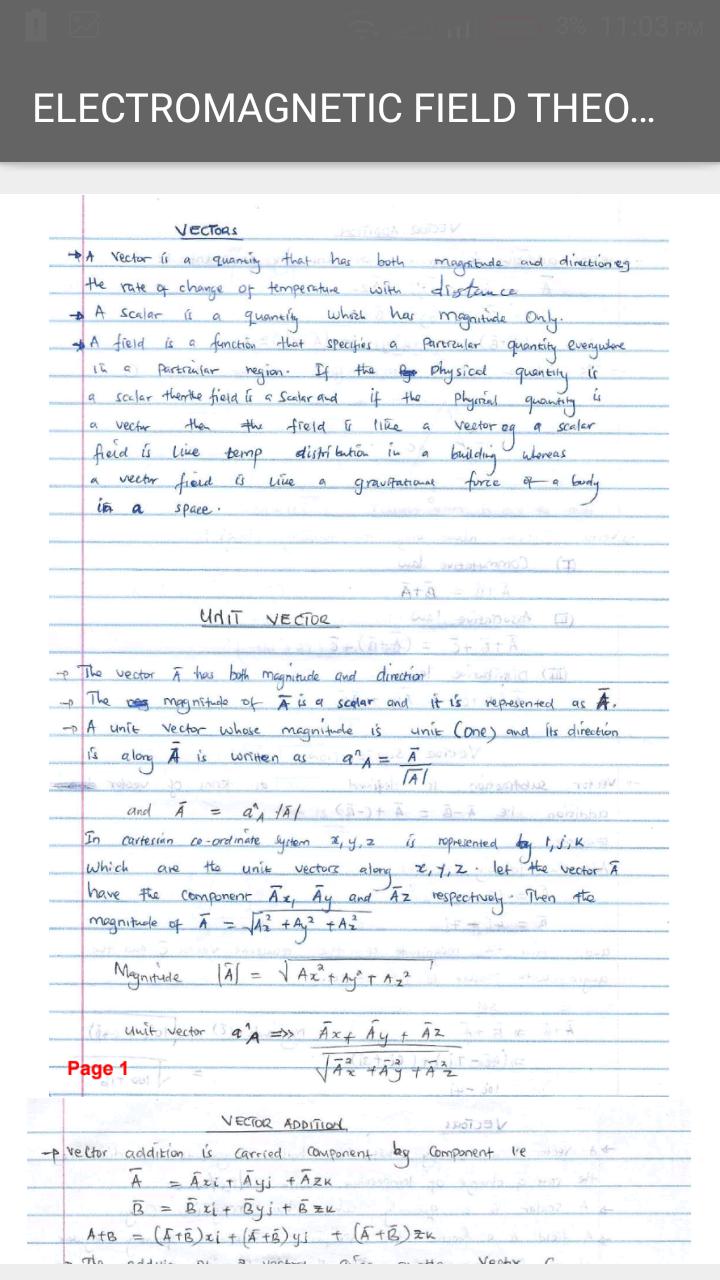 3% 11:03 PM
ELECTROMAGNETIC FIELD THEO...
VECTORS
→ A vector is a quantity that has both magnitude and direction eg
the rate of change of temperature with distance
→ A scalar is a quantity which has magnitude Only.
→ A field is a function that specifies a particular quantity everywhere
in a particular region. If the physical quantity is
a scalar then the field is a scalar and if the physical quantity is
a vector then the field is like a vector eg a scalar
field is like temp distribution in a building whereas
a vector field is like a gravitational force of a body
in a space.
UNIT VECTOR
→ The vector Ā has both magnitude and direction
→ The magnitude of Ā is a scalar and it is represented as Ā.
→ A unit vector whose magnitude is unit (one) and its direction
is along Ā is written as a^A = Ā/|Ā|
and Ā = a^A |Ā|
In cartesian co-ordinate system x, y, z is represented by i, j, k
which are the unit vectors along x, y, z. let the vector Ā
have the component Āx, Āy and Āz respectively. Then the
magnitude of Ā = √Ax² + Ay² + Az²
Magnitude |Ā| = √Ax² + Ay² + Az²
Unit vector a^A ⇒> Āx + Āy + Āz / √Āx² + Āy² + Āz²
Page 1
VECTOR ADDITION
→ Vector addition is carried component by component ie
Ā = Āxi + Āyj + Āzk
B̄ = B̄xi + B̄yj + B̄zk
A+B = (Ā+B̄)xi + (Ā+B̄)yj + (Ā+B̄)zk